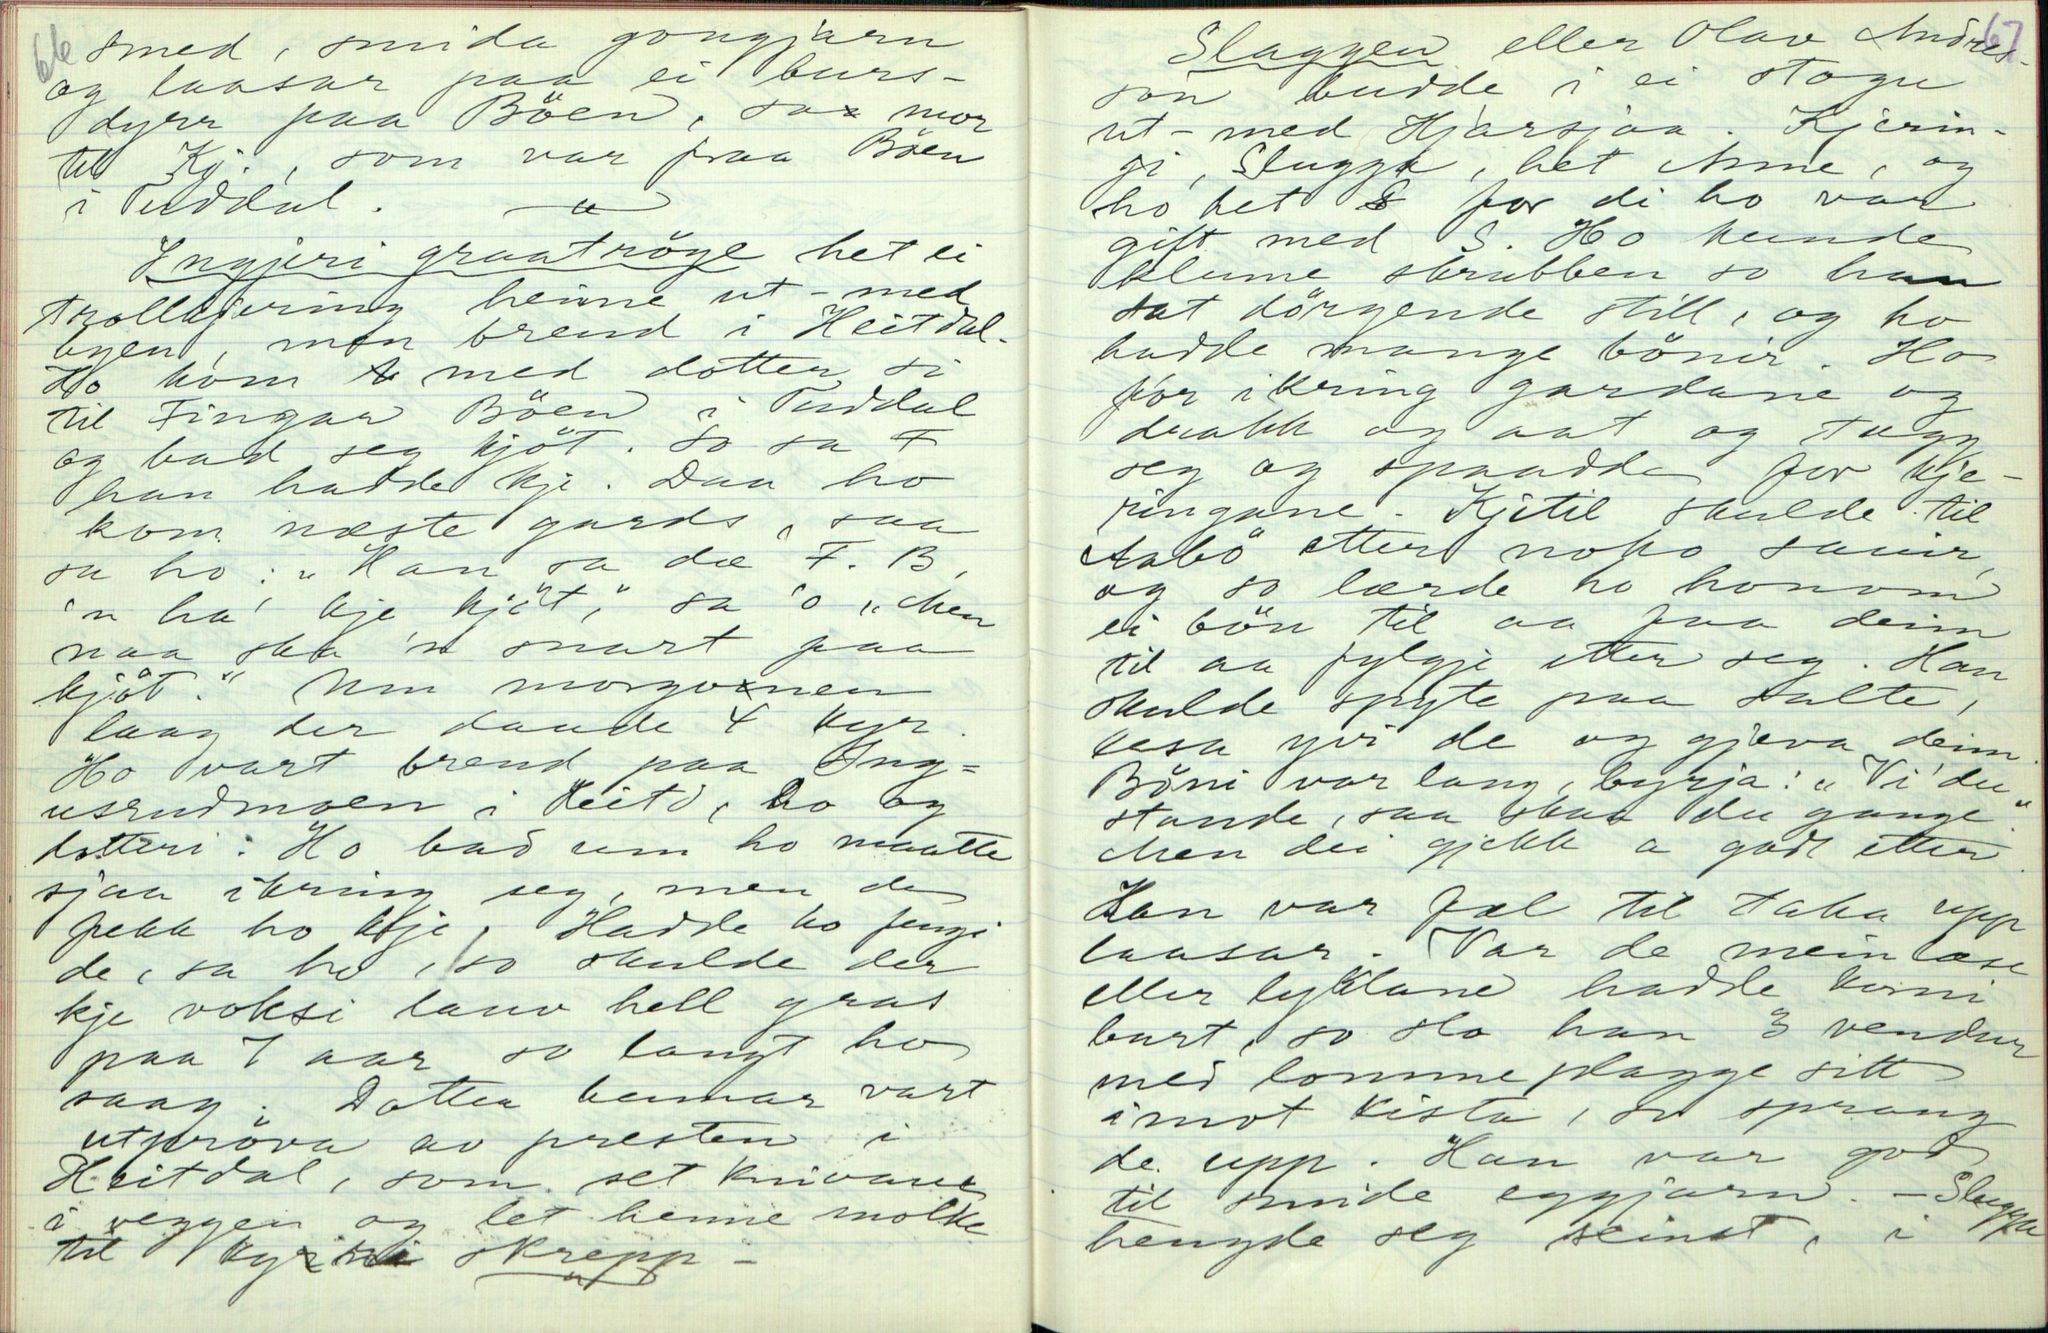 66
smed, smida gongjarn
og laasar paa ei burs-
dyrr paa Böen, sa mor
til Kj., som var fraa Böen
i Tuddal.
Ingjeri graatröge het ei
trollkjering heime ut-med
byen, men brend i Heitdal.
Ho kom med dotter si
til Fingar Böen i Tuddal
og bad seg kjöt. So sa F
han hadde kje. Daa ho
kom næste gards, saa
sa ho: "Han sa dæ F. B,
'n ha' kje kjöt", sa 'o "Men
naa ska 'n snart faa
kjöt." Um morgonen
laag der daude 4 kyr.
Ho vart brend paa Ing-
usrudmoen i Heitd, ho og
dotteri. Ho bad um ho maatte
sjaa ikring seg, men de
fekk ho kje. Hadde ho fengi
de, sa ho, so skulde der
kje voksi lauv hell gras
paa 7 aar so langt ho
saag. Dotter hennar vart
utpröva av presten i
Heitdal, som set knivane
i veggen og let henne molke
til kyri skrepp -
67
Slaggen eller Olav Andres-
son budde i ei stogu
ut-med Hjarsjaa. Kjerin-
gi, Slugga, het Anne, og
ho het S for di ho var
gift med S. Ho kunde
klume skrubben so han
sat dörgende still, og ho
hadde mange bönir. Ho
for ikring gardane og
drakk og aat og tagg
seg og spaadde for kje-
ringane. Kjetil skulde til
Aabö etter noko sauir,
og so lærde ho honom
ei bön til aa faa deim
til aa fylgje etter seg. Han
skulde spyte paa salte,
lesa yvi de og gjeva deim.
Böni var lang, byrja: "Vi' du
stande, saa skaa du gange."
Men dei gjekk a godt etter.
Han var fæl til taka upp
laasar. Var de mein læse
eller lyklane hadde komi
burt, so slo han 3 vendur
med lommeplagge sitt
imot kista, so sprang
de upp. Han var god
til smide eggjarn. - Slugga
hengde seg seinst, i